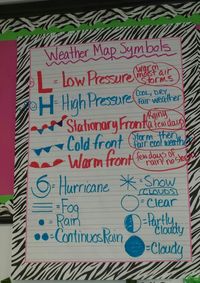 Weather Map Symbols
L = Low Pressure warm moist air storms
H = High Pressure cool, dry, fair weather
Stationary Front Rainy a few days
= Cold front Storm then fair cool weather
= Warm front few days of rain no storm
= Hurricane
= Snow (CLOUDS)
= Fog
= Clear
= Rain
= Partly cloudy
= Continuos Rain
= Cloudy